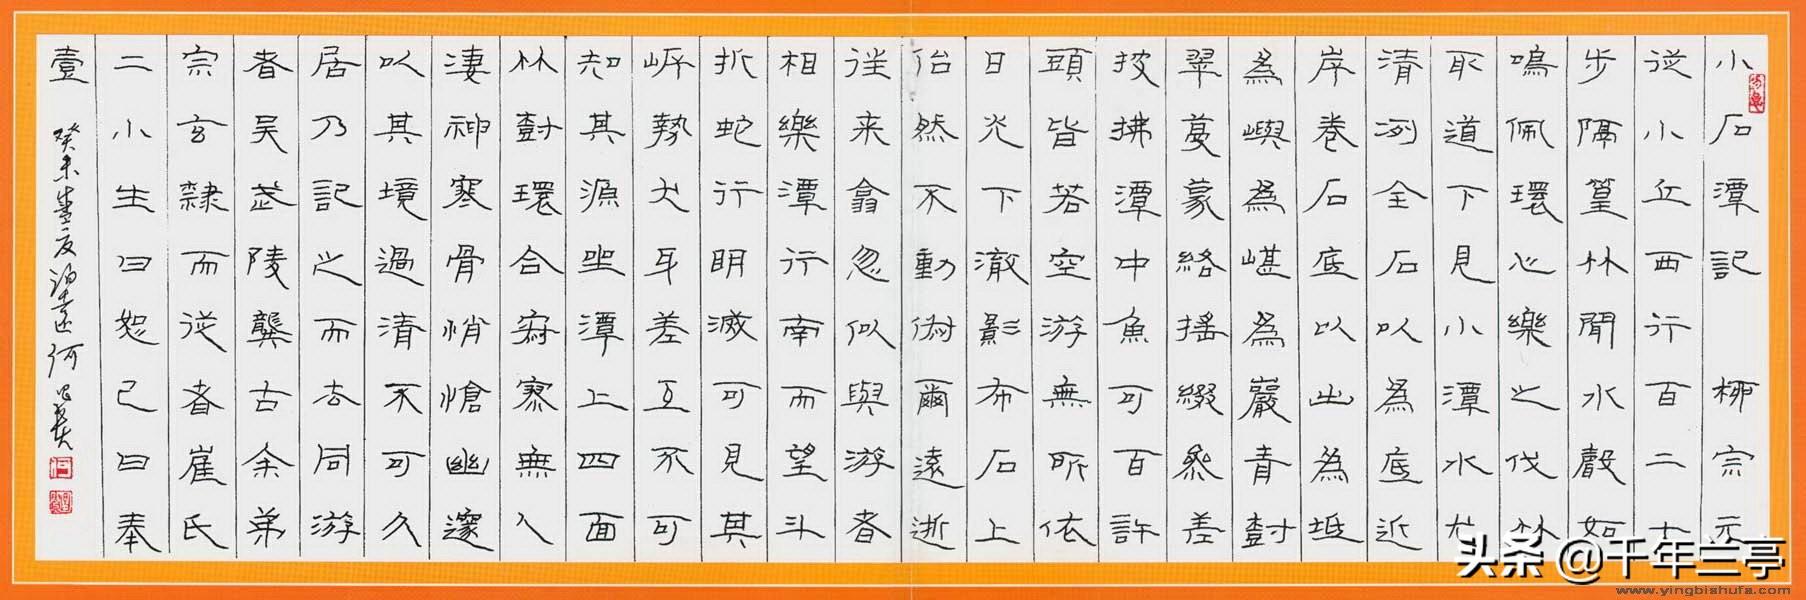 小石潭記 柳宗元
從小丘西行百二十
步隔篁竹聞水聲如
鳴佩環心樂之伐竹
取道下見小潭水尤
清冽全石以為底近
岸卷石底以出為坻
為嶼為嵁為巖青樹
翠蔓蒙絡搖綴參差
披拂潭中魚可百許
頭皆若空游無所依
日光下澈影布石上
佁然不動俶爾遠逝
往来翕忽似與游者
相樂潭行南而望斗
折蛇行明滅可見其
岍勢犬牙差互不可
知其源坐潭上四面
竹樹環合寂寥無人
凄神寒骨悄愴幽邃
以其境過清不可久
居乃記之而去同游
者吴武陵龔古余弟
宗玄隸而從者崔氏
二小生曰恕己曰奉
壹 癸未
头条 @千年兰亭
www.yingbishufa.com